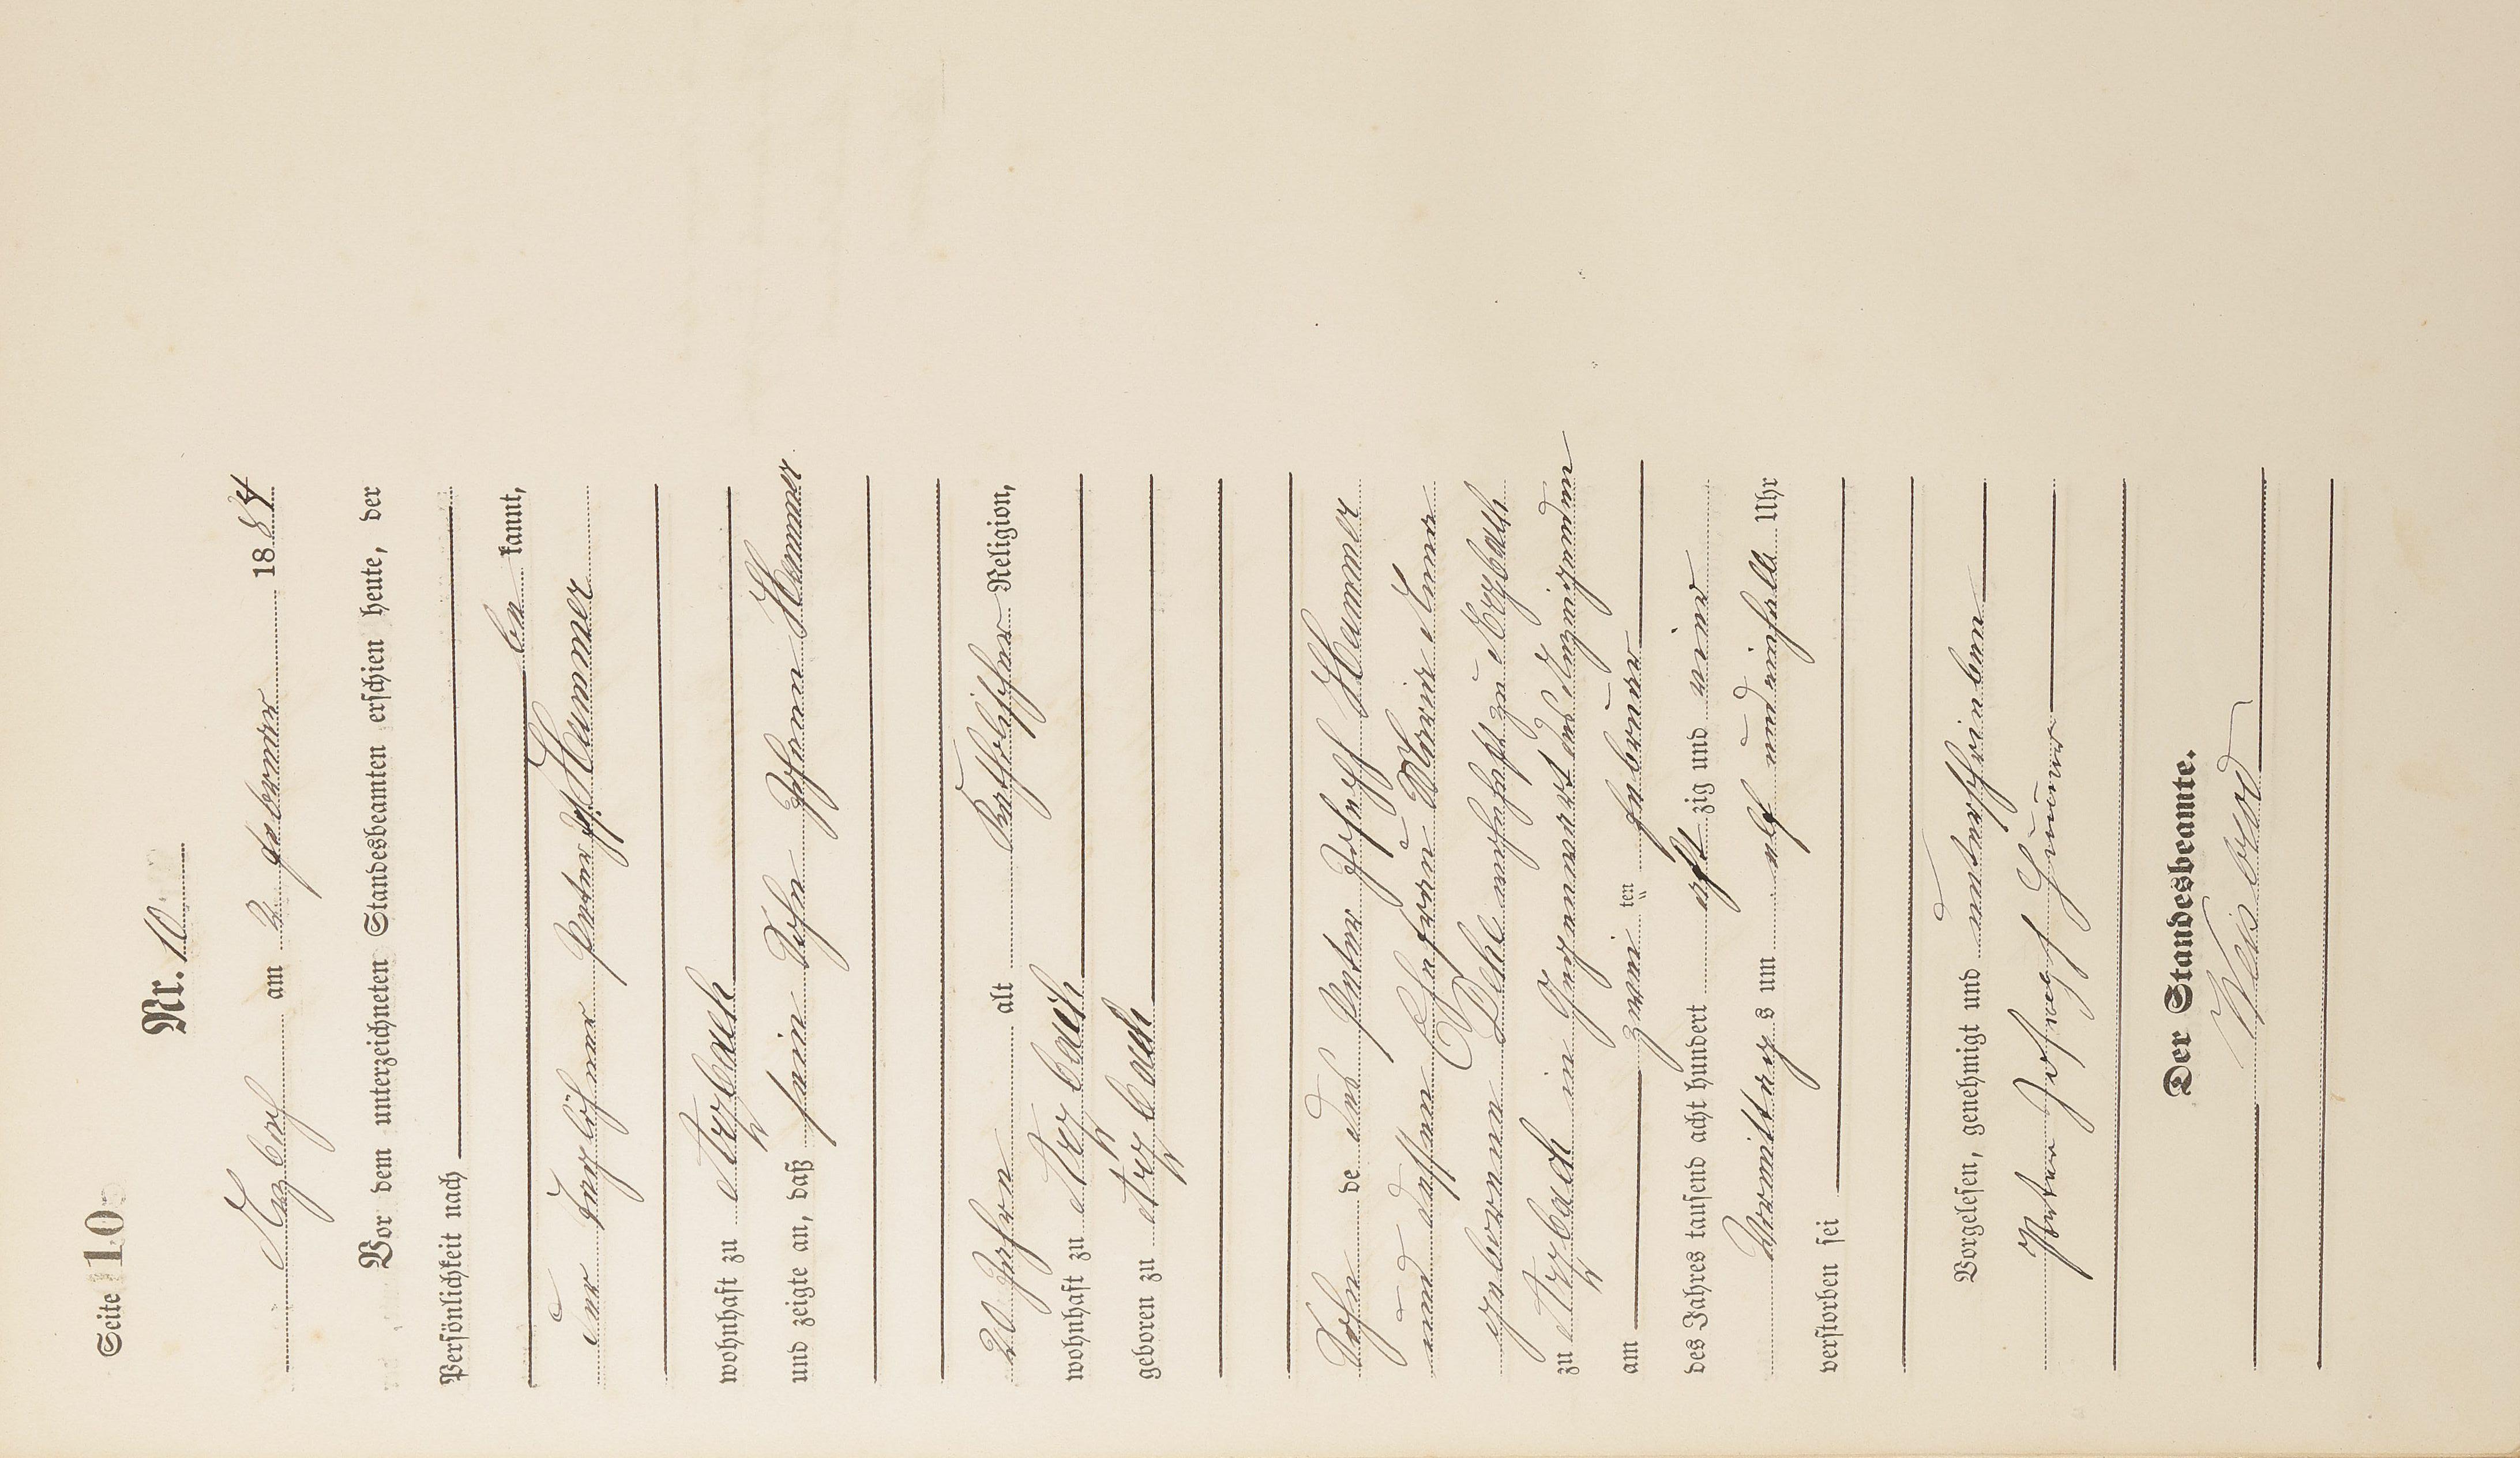 Seite 10
Nr. 10
Arzbach am 2 Februar 1884
Vor dem unterzeichneten Standesbeamten erschien heute, der
Persönlichkeit nach
be kannt,
der Taglöhner Peter Jos. Hammer
wohnhaft zu Arzbach
und zeigte an, daß sein Sohn Johann Hammer
20 Jahre alt Katholischer Religion,
wohnhaft zu Arzbach
geboren zu Arzbach
Sohn de des Peter Joseph Hammer
und dessen Ehefrau Maria Anna
geborenen wohnhaft zu Arzbach
zu Arzbach in Gegenwart des Anzeigenden
am zwei ten Februar
des Jahres tausend acht hundert acht zig und vier
Vormittag s um elf und einhalb Uhr
verstorben sei
Vorgelesen, genehmigt und unterschrieben
Peter Joseph Hammer
Der Standesbeamte.